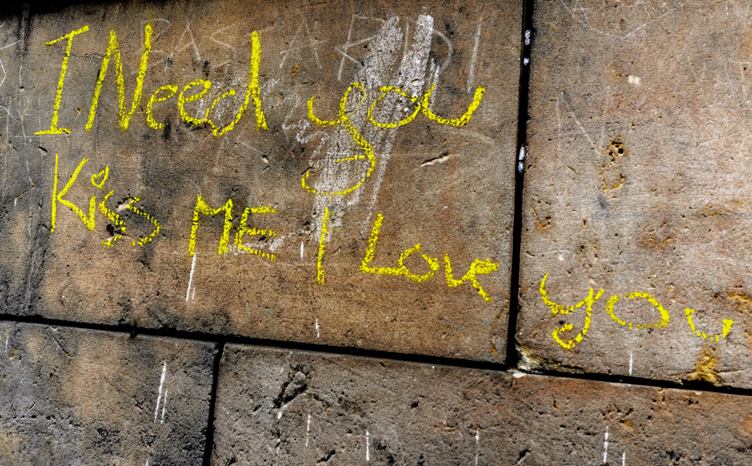 I Need you
Kiss ME I Love you